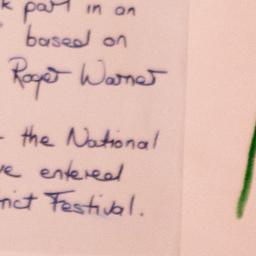 part in an
based on
Roger Warner
the National
entered
Festival.